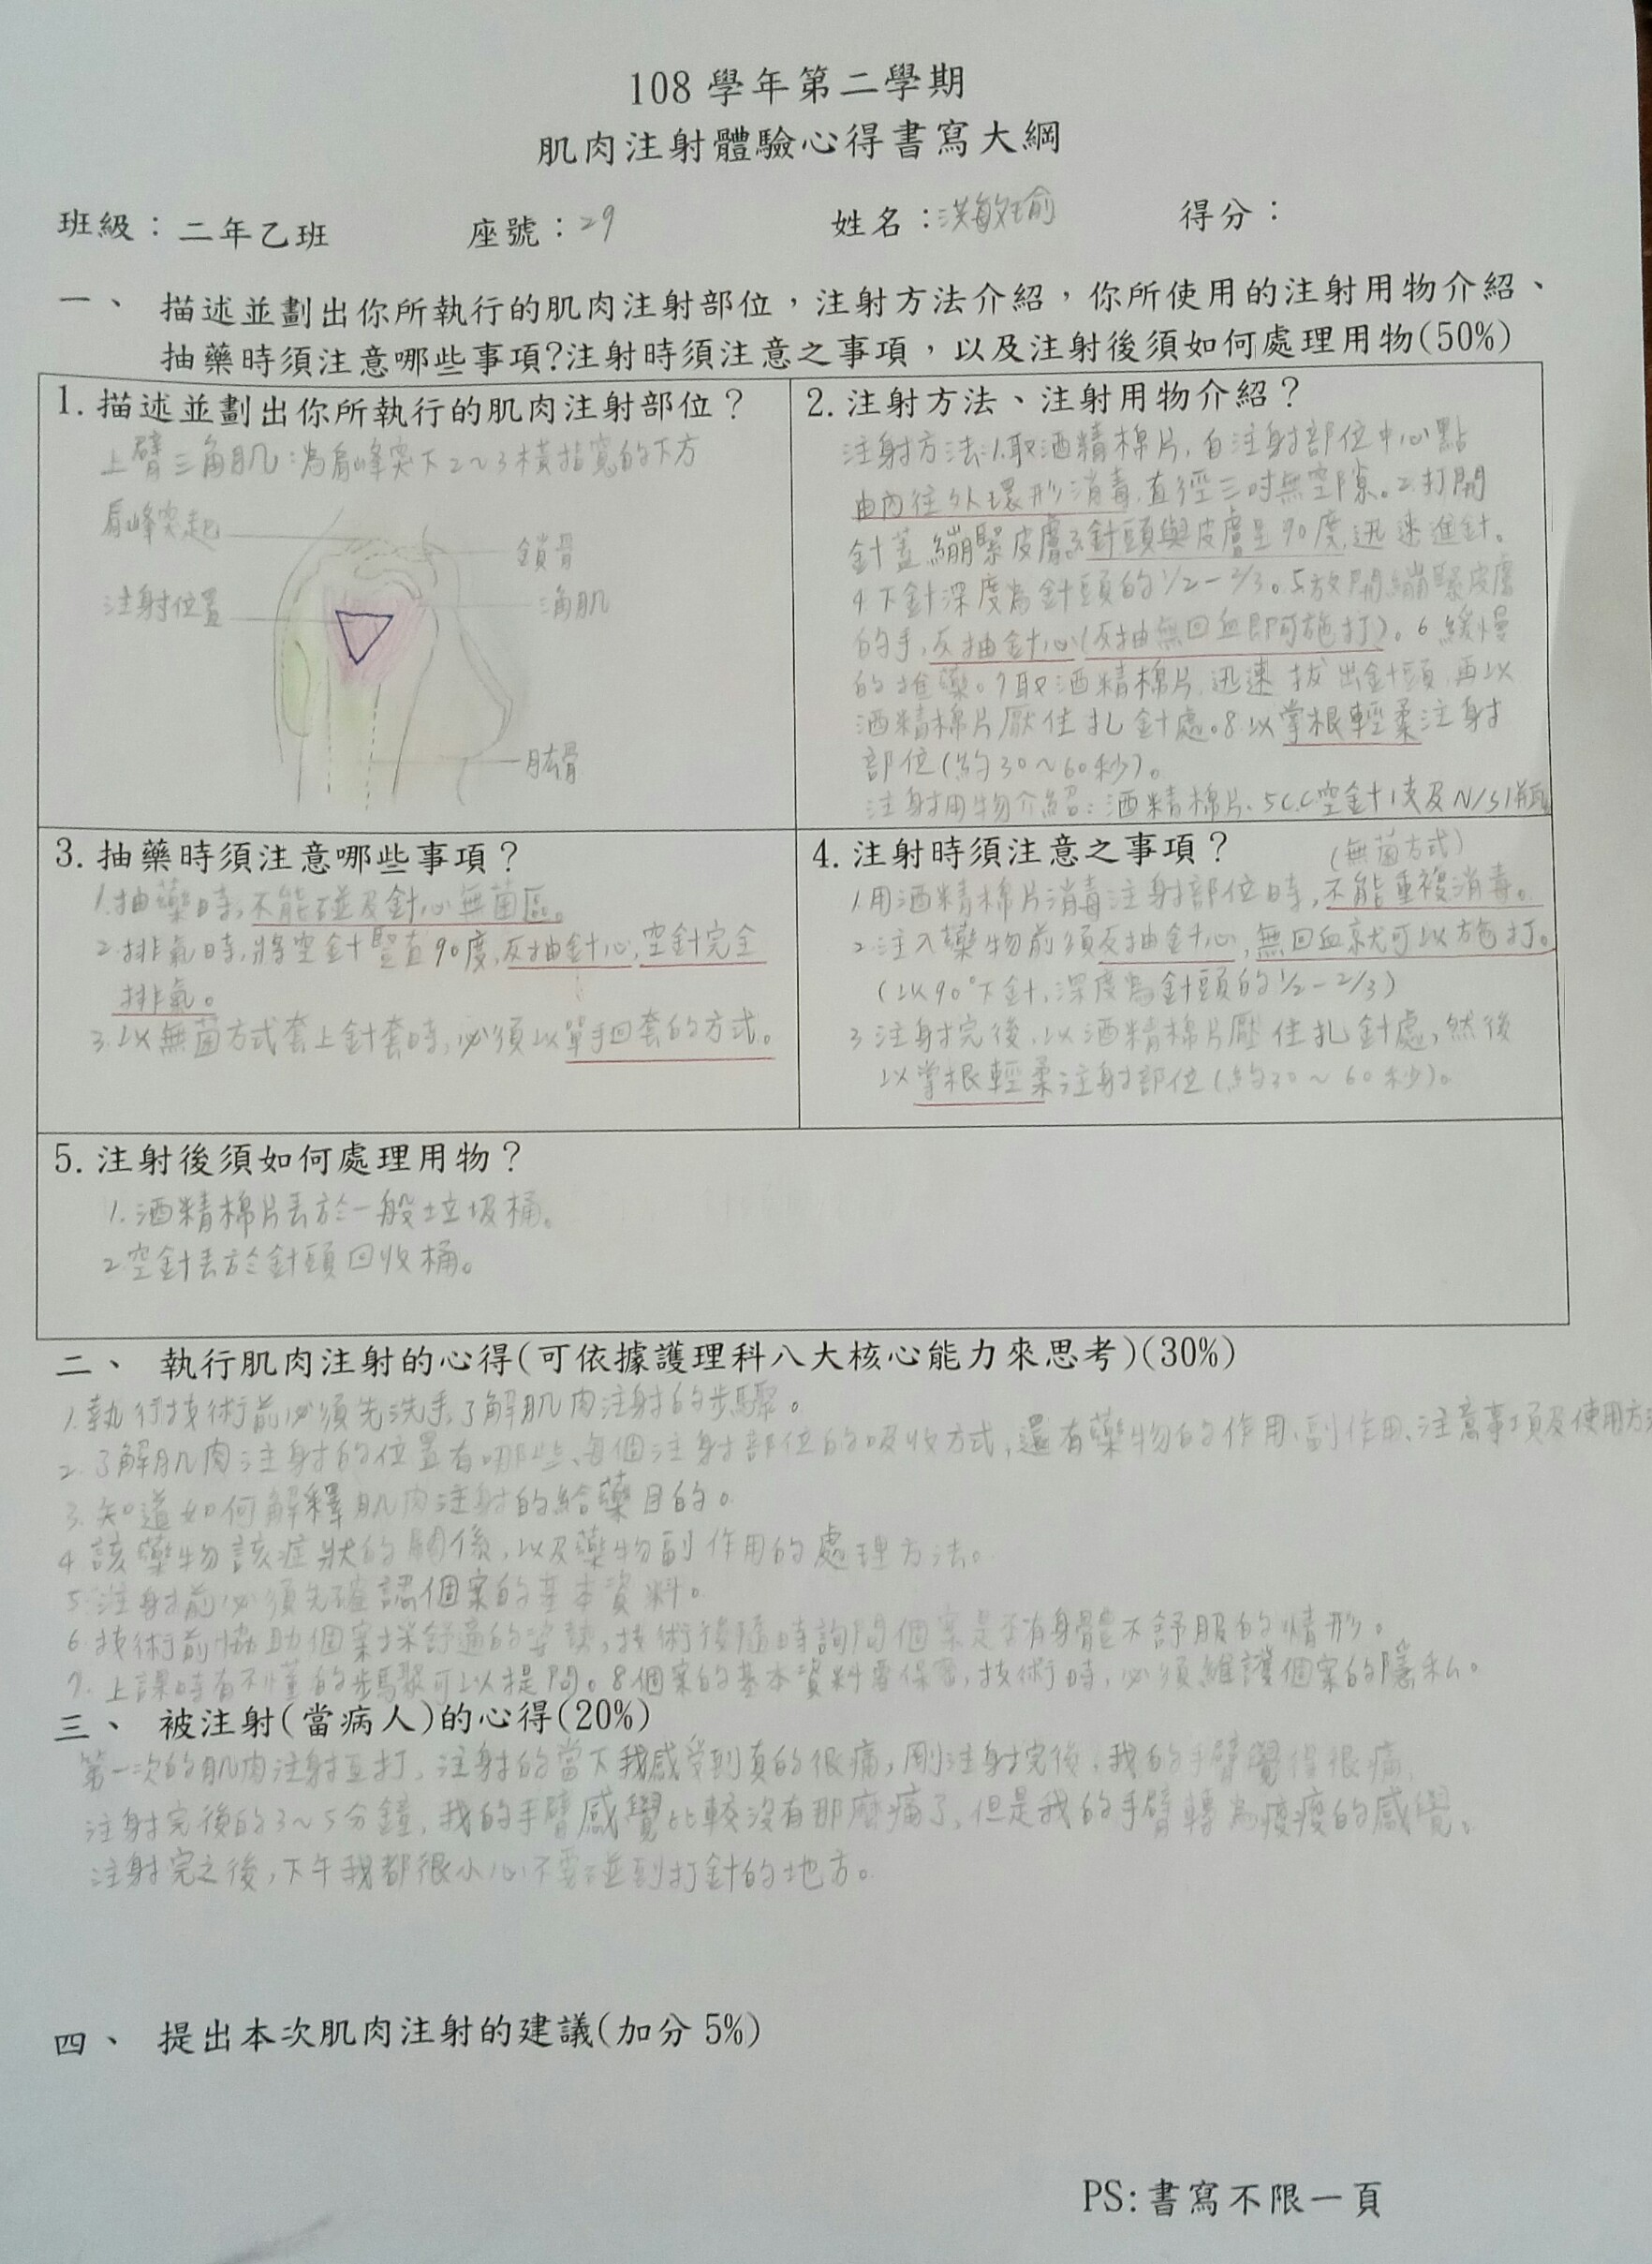 108 學年第二學期
肌肉注射體驗心得書寫大綱
班級：二年乙班 座號：29 姓名：洪敏瑜 得分：
一、 描述並劃出你所執行的肌肉注射部位，注射方法介紹，你所使用的注射用物介紹、
抽藥時須注意哪些事項?注射時須注意之事項，以及注射後須如何處理用物(50%)
1. 描述並劃出你所執行的肌肉注射部位？
上臂三角肌：為肩峰突下2~3橫指寬的下方
肩峰突起
鎖骨
注射位置
三角肌
肱骨
2. 注射方法、注射用物介紹？
注射方法:1.取酒精棉片，自注射部位中心點
由內往外環形消毒,直徑三吋無空隙。2.打開
針蓋,繃緊皮膚3.針頭與皮膚呈90度,迅速進針。
4.下針深度為針頭的1/2-2/3。5.放開繃緊皮膚
的手,反抽針心(反抽無回血即可施打)。6.緩慢
的推藥。7.取酒精棉片,迅速拔出針頭,再以
酒精棉片壓住扎針處。8.以掌根輕柔注射
部位(約30~60秒)。
注射用物介紹：酒精棉片、5C.C空針1支及N/S1瓶。
3. 抽藥時須注意哪些事項？
1.抽藥時,不能碰及針心無菌區。
2.排氣時,將空針豎直90度,反抽針心,空針完全
排氣。
3.以無菌方式套上針套時,必須以單手回套的方式。
4. 注射時須注意之事項？ (無菌方式)
1.用酒精棉片消毒注射部位時,不能重複消毒。
2.注入藥物前須反抽針心,無回血就可以施打。
(以90°下針,深度為針頭的1/2-2/3)
3.注射完後,以酒精棉片壓住扎針處,然後
以掌根輕柔注射部位(約30~60秒)。
5. 注射後須如何處理用物？
1.酒精棉片丟於一般垃圾桶。
2.空針丟於針頭回收桶。
二、 執行肌肉注射的心得(可依據護理科八大核心能力來思考)(30%)
1.執行技術前必須先洗手,了解肌肉注射的步驟。
2.了解肌肉注射的位置有哪些、每個注射部位的吸收方式,還有藥物的作用、副作用、注意事項及使用方法
3.知道如何解釋肌肉注射的給藥目的。
4.該藥物該症狀的關係,以及藥物副作用的處理方法。
5.注射前必須先確認個案的基本資料。
6.技術前協助個案採舒適的姿勢,技術後隨時詢問個案是否有身體不舒服的情形。
7.上課時有不懂的步驟可以提問。8.個案的基本資料要保密,技術時,必須維護個案的隱私。
三、 被注射(當病人)的心得(20%)
第一次的肌肉注射互打,注射的當下我感受到真的很痛,剛注射完後,我的手臂覺得很痛,
注射完後的3~5分鐘,我的手臂感覺比較沒有那麼痛了,但是我的手臂轉為痠痠的感覺。
注射完之後,下午我都很小心不要碰到打針的地方。
四、 提出本次肌肉注射的建議(加分 5%)
PS:書寫不限一頁